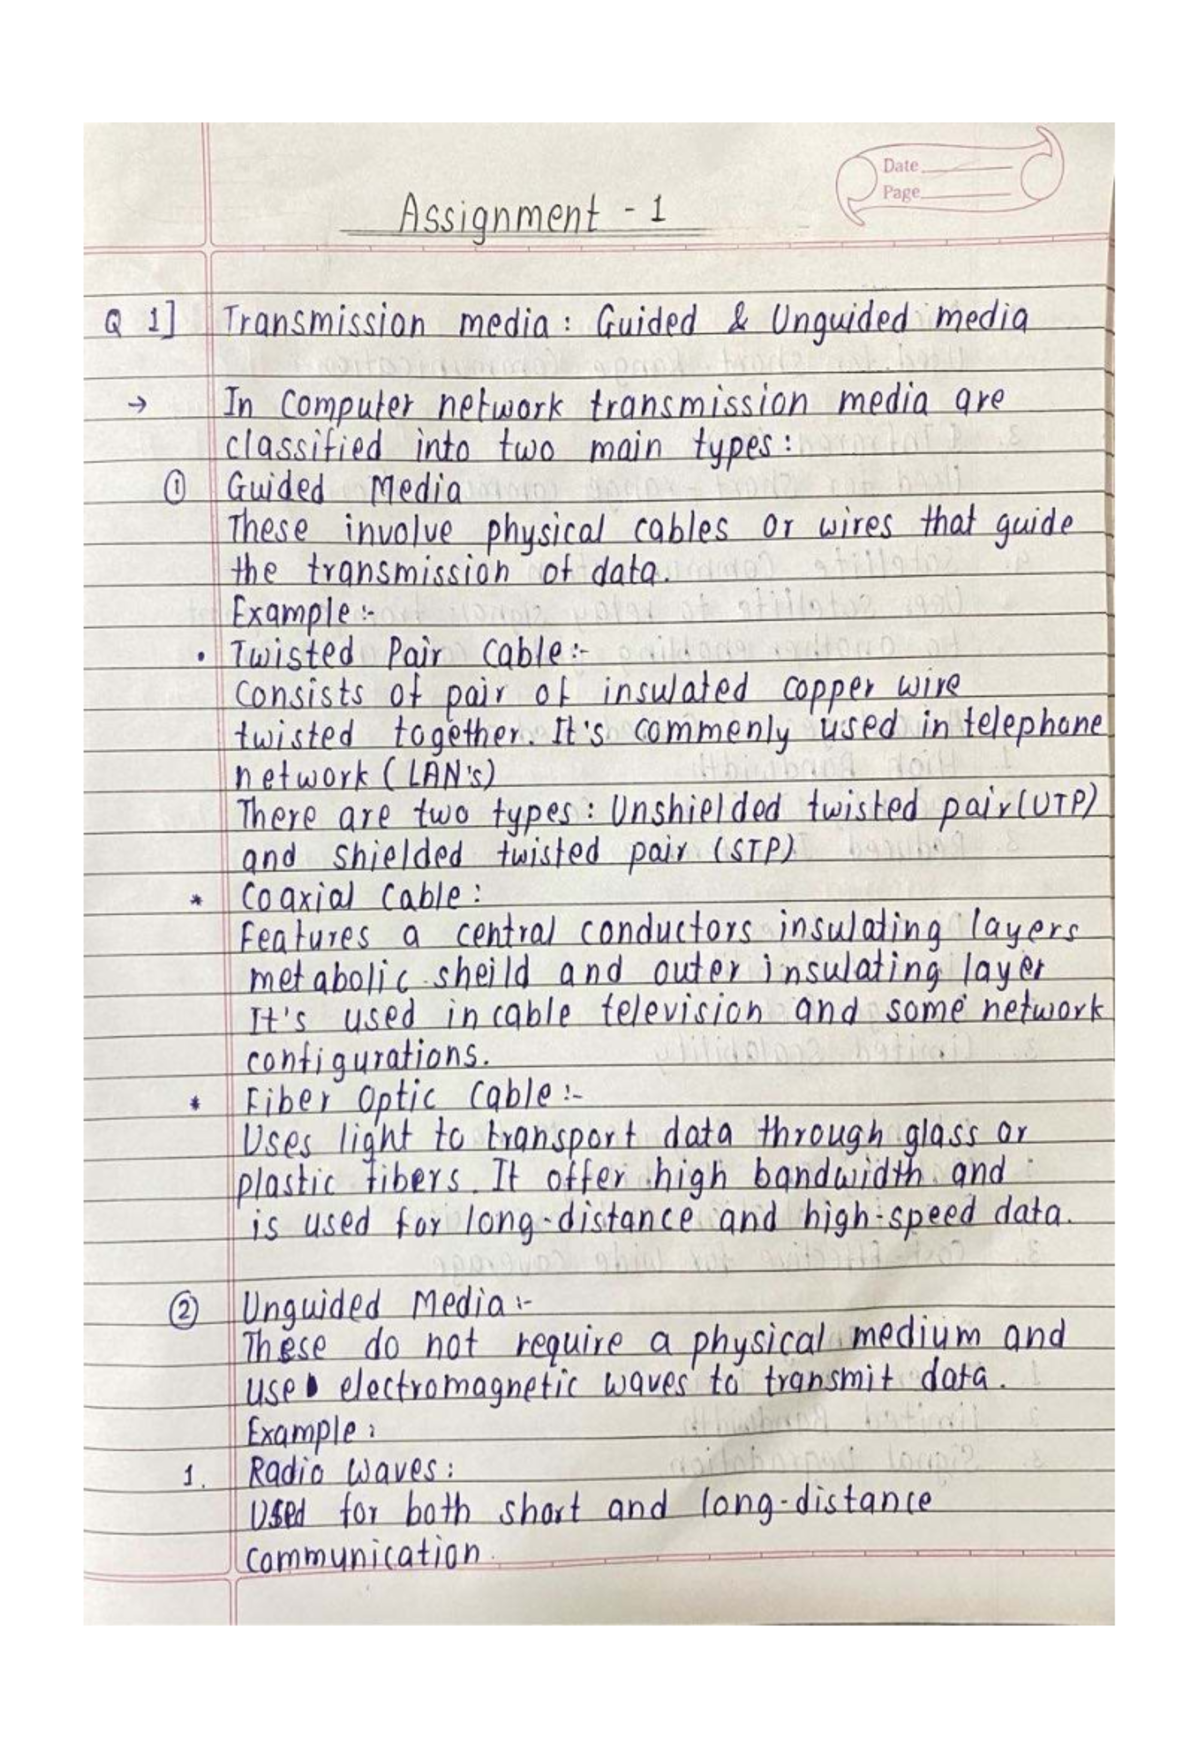 Date
Page
Assignment - 1
Q 1] Transmission media : Guided & Unguided media
→ In computer network transmission media are
classified into two main types :
① Guided Media
These involve physical cables or wires that guide
the transmission of data.
Example :-
• Twisted Pair Cable :-
Consists of pair of insulated copper wire
twisted together. It's commenly used in telephone
network ( LAN's)
There are two types : Unshielded twisted pair (UTP)
and shielded twisted pair (STP)
* Coaxial Cable :
Features a central conductors insulating layers
metabolic sheild and outer insulating layer
It's used in cable television and some network
configurations.
* Fiber Optic Cable :-
Uses light to transport data through glass or
plastic fibers. It offer high bandwidth and
is used for long-distance and high-speed data.
② Unguided Media :-
These do not require a physical medium and
use electromagnetic waves to transmit data.
Example :
1. Radio Waves :
Used for both short and long-distance
communication.